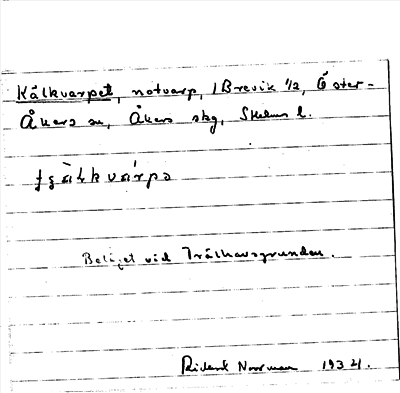 Kålkvarpet, notvarp, 1 Brevik 1/2, Öster-
Åkers sn, Åkers skg, Sthlms l.
Beläget vid Trälhavsgrunden.
Rickard Norrman 1934.